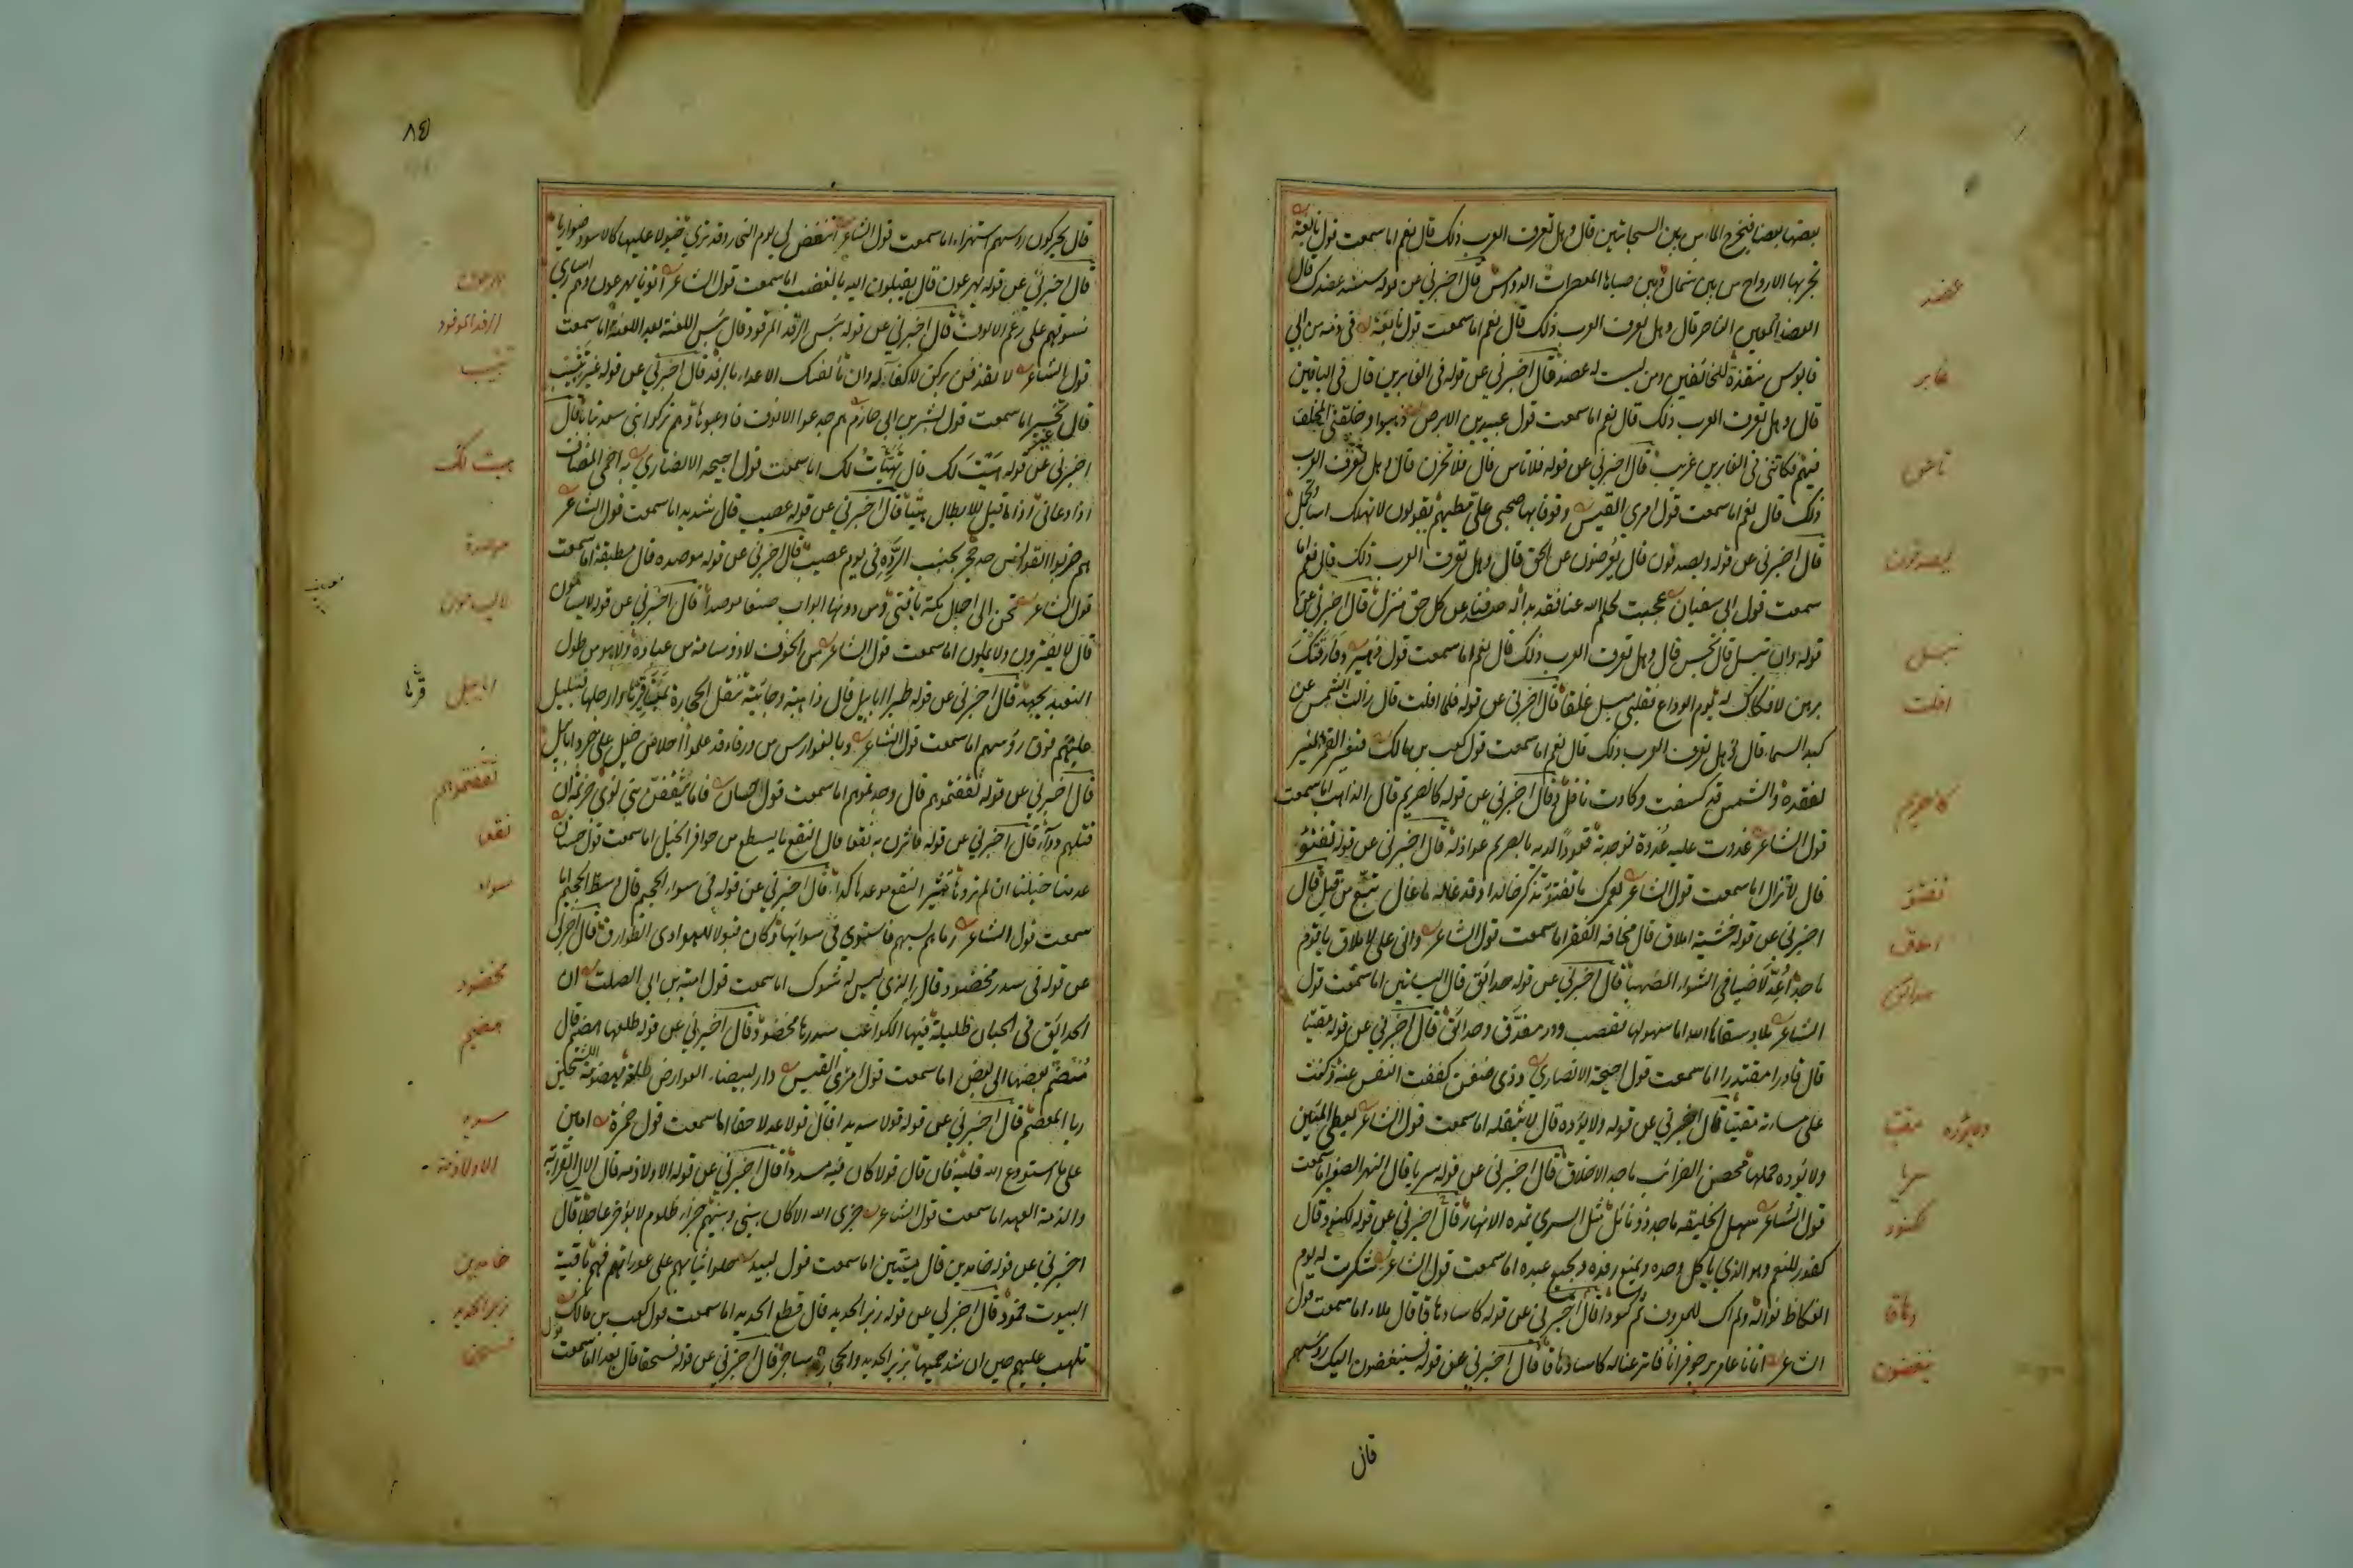 بعضها بعضا فيخرج الماء من بين السحابتين قال وهل تعرف العرب ذلك قال نعم اما سمعت قول نابغة
تجر بها الارواح من بين شمال وبين صباها المعصرات الدوامس قال اخبرني عن قوله سنشد عضدك قال
العضد المعين الناصر قال وهل تعرف العرب ذلك قال نعم اما سمعت قول نابغة فى ذمة من ابي
قابوس منقذة للخائفين ومن ليست له عضد قال اخبرني عن قوله فى الغابرين قال فى الباقين
قال وهل تعرف العرب ذلك قال نعم اما سمعت قول عبيد بن الابرص ذهبوا وخلفني المخلف
فيهم فكانني فى الغابرين غريب قال اخبرني عن قوله فلا تاس قال فلا تحزن قال وهل تعرف العرب
ذلك قال نعم اما سمعت قول امرئ القيس وقوفا بها صحبي على مطيهم يقولون لا تهلك اسا وتجمل
قال اخبرني عن قوله ويصدفون قال يعرضون عن الحق قال وهل تعرف العرب ذلك قال نعم اما
سمعت قول ابي سفيان عجبت لحلم الله عنا وقد بدا له صدفنا عن كل حق منزل قال اخبرني عن
قوله وان تبسل قال تحبس قال وهل تعرف العرب ذلك قال نعم اما سمعت قول زهير وفارقتك
برهن لا فكاك له يوم الوداع فقلبي مبسل غلقا قال اخبرني عن قوله فلما افلت قال زالت الشمس عن
كبد السماء قال وهل تعرف العرب ذلك قال نعم اما سمعت قول كعب بن مالك فتغير القمر المنير
لفقده والشمس قد كسفت وكادت تافل قال اخبرني عن قوله كالصريم قال الذاهب اما سمعت
قول الشاعر غدوت عليه غدوة فوجدته قعودا لديه بالصريم عواذله قال اخبرني عن قوله تفتؤ
قال لا تزال اما سمعت قول الشاعر لعمرك ما تفتؤ تذكر خالدا وقد غاله ما غال تبع من قبل قال
اخبرني عن قوله خشية املاق قال مخافة الفقر اما سمعت قول الشاعر واني على الاملاق يا قوم
ماجد اعد لاضيافي الشواء المضهبا قال اخبرني عن قوله حدائق قال البساتين اما سمعت قول
الشاعر بلاد سقاها الله اما سهولها فقضب ودر مغدق وحدائق قال اخبرني عن قوله مقيتا
قال قادرا مقتدرا اما سمعت قول احيحة الانصاري وذى ضغن كففت النفس عنه وكنت
على مساءته مقيتا قال اخبرني عن قوله ولا يؤده قال لا يثقله اما سمعت قول الشاعر يعطي المئين
ولا يؤده حملها محض الضرائب ماجد الاخلاق قال اخبرني عن قوله سريا قال النهر الصغير اما سمعت
قول الشاعر سهل الخليقة ماجد ذو نائل مثل السري تمده الانهار قال اخبرني عن قوله لكنود قال
كفور للنعم وهو الذي ياكل وحده ويمنع رفده ويجيع عبده اما سمعت قول الشاعر شكرت له يوم
العكاظ نواله ولم اك للمعروف ثم كنودا قال اخبرني عن قوله كاسا دهاقا قال ملاء اما سمعت قول
الشاعر اتانا عامر يرجو قرانا فاترعنا له كاسا دهاقا قال اخبرني عن قوله فسينغضون اليك رؤسهم
قال
عضد
غابر
تاس
يصدفون
تبسل
افلت
كالصريم
تفتؤ
املاق
حدائق
ولا يؤده مقيتا
سريا
كنود
دهاقا
ينغضون
قال يحركون رؤسهم استهزاء اما سمعت قول الشاعر اتنغض لي يوم الفجار وقد ترى خيولا عليها كالاسود ضواريا
قال اخبرني عن قوله يهرعون قال يقبلون اليه بالغضب اما سمعت قول الشاعر اتونا يهرعون وهم اسارى
نسوقهم على رغم الانوف قال اخبرني عن قوله بئس الرفد المرفود قال بئس اللعنة بعد اللعنة اما سمعت
قول الشاعر لا تقذفن بركن لا كفاء له وان تأثفك الاعداء بالرفد قال اخبرني عن قوله غير تتبيب
قال تخسير اما سمعت قول بشر بن ابي حازم هم جدعوا الانوف فاوعبوها وهم تركوا بني سعد تبابا قال
اخبرني عن قوله هيت لك قال تهيأت لك اما سمعت قول احيحة الانصاري به احمي المضاف
اذا دعاني اذا ما قيل للابطال هيتا قال اخبرني عن قوله عصيب قال شديد اما سمعت قول الشاعر
هم ضربوا القوانس حد حجر بجنب الرده فى يوم عصيب قال اخبرني عن قوله موصدة قال مطبقة اما سمعت
قول الشاعر تحن الى اجبال مكة ناقتي ومن دونها ابواب صنعا موصدة قال اخبرني عن قوله لا يسامون
قال لا يفترون ولا يملون اما سمعت قول الشاعر من الخوف لا ذو سامة من عبادة ولا هو من طول
التعبد يجهد قال اخبرني عن قوله طيرا ابابيل قال ذاهبة وجائية تنقل الحجارة بمناقيرها وارجلها فتبلبل
عليهم فوق رؤسهم اما سمعت قول الشاعر وبالفوارس من ورقاء قد علموا احلاس خيل على جرد ابابيل
قال اخبرني عن قوله ثقفتموهم قال وجدتموهم اما سمعت قول حسان فاما يثقفن بني لوى جذيمة ان
قتلهم دواء قال اخبرني عن قوله فاثرن به نقعا قال النقع ما يسطع من حوافر الخيل اما سمعت قول حسان
عدمنا خيلنا ان لم تروها تثير النقع موعدها كداء قال اخبرني عن قوله فى سواء الجحيم قال وسط الجحيم اما
سمعت قول الشاعر رماهم بسهم فاستوى فى سوائها وكان قبولا للهوادى الطوارق قال اخبرني
عن قوله فى سدر مخضود قال الذي ليس له شوك اما سمعت قول امية بن ابي الصلت ان
الحدائق فى الجنان ظليلة فيها الكواعب سدرها مخضود قال اخبرني عن قوله طلعها هضيم قال
منضم بعضها الى بعض اما سمعت قول امرئ القيس دار لبيضاء العوارض طفلة مهضومة الكشحين
ريا المعصم قال اخبرني عن قوله قولا سديدا قال قولا عدلا حقا اما سمعت قول حمزة امين
على ما استودع الله قلبه فان قال قولا كان فيه مسددا قال اخبرني عن قوله الا ولا ذمة قال الال القرابة
والذمة العهد اما سمعت قول الشاعر جزى الله الا كان بيني وبينهم جزاء ظلوم لا يؤخر عاجلا قال
اخبرني عن قوله خامدين قال ميتين اما سمعت قول لبيد حلوا ثيابهم على عوراتهم فهم بافنية
البيوت خمود قال اخبرني عن قوله زبر الحديد قال قطع الحديد اما سمعت قول كعب بن مالك
تلهب عليهم حين ان شد حميها بزبر الحديد والحجارة ساجر قال اخبرني عن قوله فسحقا قال بعدا اما سمعت قول
يهرعون
الرفد المرفود
تتبيب
هيت لك
موصدة
لا يسامون
ابابيل
ثقفتموهم
نقعا
سواء
مخضود
هضيم
سديد
الا ولا ذمة
خامدين
زبر الحديد
فسحقا